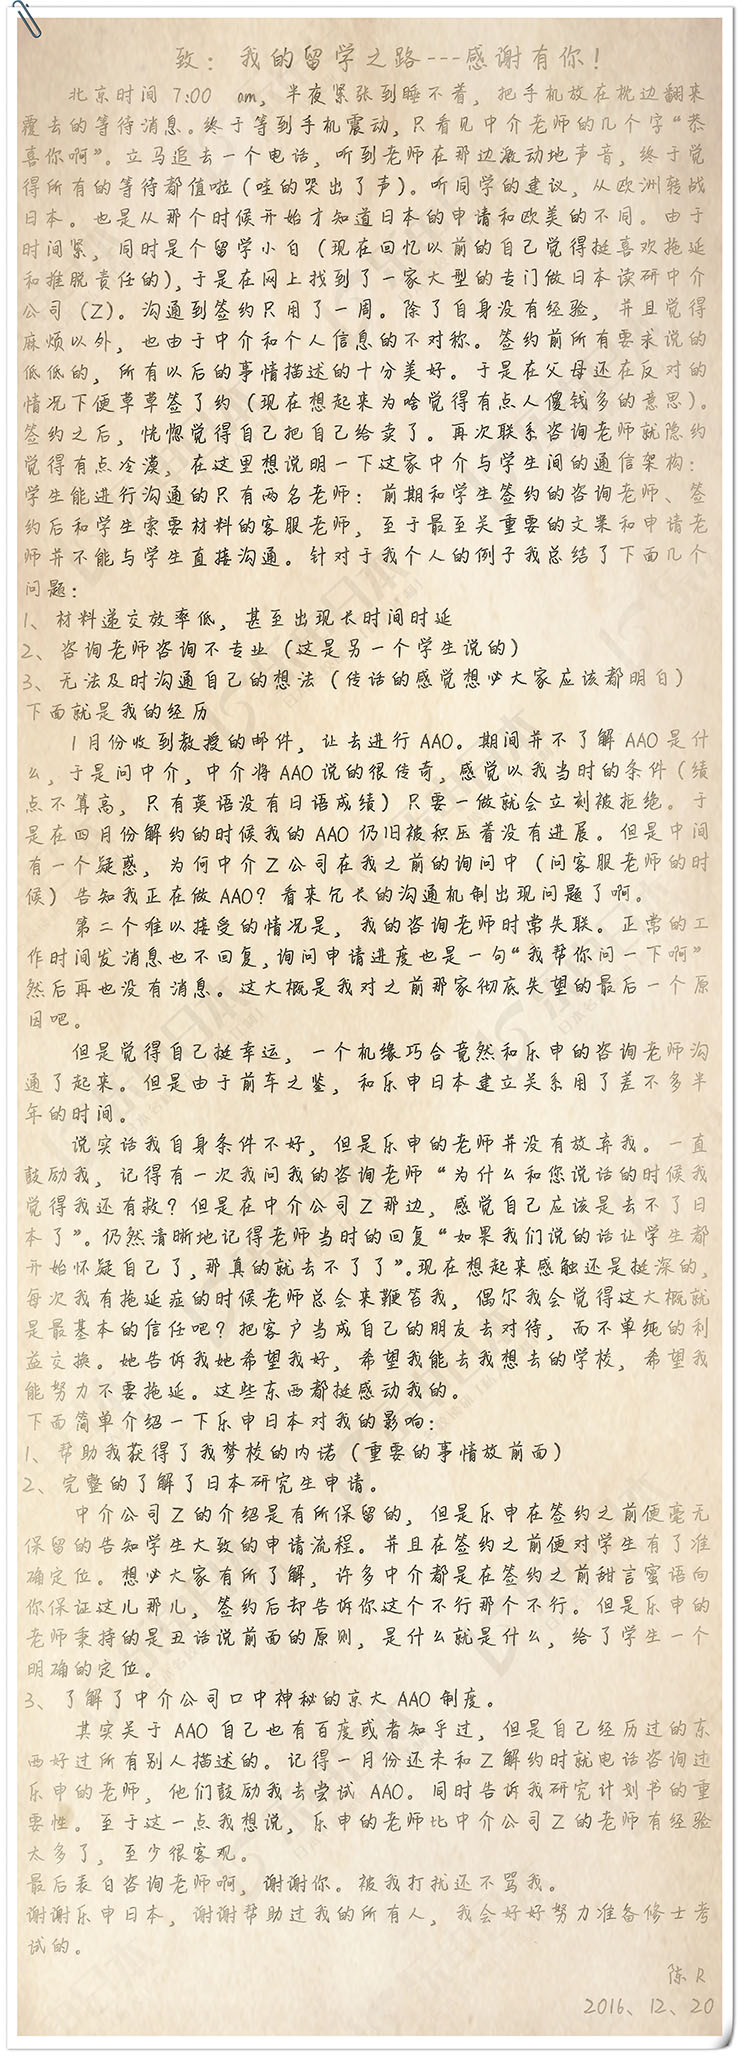 致：我的留学之路---感谢有你！
北京时间 7:00 am，半夜紧张到睡不着，把手机放在枕边翻来
覆去的等待消息。终于等到手机震动，只看见中介老师的几个字“恭
喜你啊”。立马追去一个电话，听到老师在那边激动地声音，终于觉
得所有的等待都值啦（哇的哭出了声）。听同学的建议，从欧洲转战
日本。也是从那个时候开始才知道日本的申请和欧美的不同。由于
时间紧，同时是个留学小白（现在回忆以前的自己觉得挺喜欢拖延
和推脱责任的），于是在网上找到了一家大型的专门做日本读研中介
公司（Z）。沟通到签约只用了一周。除了自身没有经验，并且觉得
麻烦以外，也由于中介和个人信息的不对称。签约前所有要求说的
低低的，所有以后的事情描述的十分美好。于是在父母还在反对的
情况下便草草签了约（现在想起来为啥觉得有点人傻钱多的意思）。
签约之后，恍惚觉得自己把自己给卖了。再次联系咨询老师就隐约
觉得有点冷漠，在这里想说明一下这家中介与学生间的通信架构：
学生能进行沟通的只有两名老师：前期和学生签约的咨询老师、签
约后和学生索要材料的客服老师，至于最至关重要的文案和申请老
师并不能与学生直接沟通。针对于我个人的例子我总结了下面几个
问题：
1、材料递交效率低，甚至出现长时间时延
2、咨询老师咨询不专业（这是另一个学生说的）
3、无法及时沟通自己的想法（传话的感觉想必大家应该都明白）
下面就是我的经历
1月份收到教授的邮件，让去进行 AAO。期间并不了解 AAO 是什
么，于是问中介，中介将 AAO 说的很传奇，感觉以我当时的条件（绩
点不算高，只有英语没有日语成绩）只要一做就会立刻被拒绝。于
是在四月份解约的时候我的 AAO 仍旧被积压着没有进展。但是中间
有一个疑惑，为何中介 Z 公司在我之前的询问中（问客服老师的时
候）告知我正在做 AAO？看来冗长的沟通机制出现问题了啊。
第二个难以接受的情况是，我的咨询老师时常失联。正常的工
作时间发消息也不回复，询问申请进度也是一句“我帮你问一下啊”
然后再也没有消息。这大概是我对之前那家彻底失望的最后一个原
因吧。
但是觉得自己挺幸运，一个机缘巧合竟然和乐申的咨询老师沟
通了起来。但是由于前车之鉴，和乐申日本建立关系用了差不多半
年的时间。
说实话我自身条件不好，但是乐申的老师并没有放弃我。一直
鼓励我，记得有一次我问我的咨询老师“为什么和您说话的时候我
觉得我还有救？但是在中介公司 Z 那边，感觉自己应该是去不了日
本了”。仍然清晰地记得老师当时的回复“如果我们说的话让学生都
开始怀疑自己了，那真的就去不了了”。现在想起来感触还是挺深的，
每次我有拖延症的时候老师总会来鞭笞我，偶尔我会觉得这大概就
是最基本的信任吧？把客户当成自己的朋友去对待，而不单纯的利
益交换。她告诉我她希望我好，希望我能去我想去的学校，希望我
能努力不要拖延。这些东西都挺感动我的。
下面简单介绍一下乐申日本对我的影响：
1、帮助我获得了我梦校的内诺（重要的事情放前面）
2、完整的了解了日本研究生申请。
中介公司 Z 的介绍是有所保留的，但是乐申在签约之前便毫无
保留的告知学生大致的申请流程。并且在签约之前便对学生有了准
确定位。想必大家有所了解，许多中介都是在签约之前甜言蜜语向
你保证这儿那儿，签约后却告诉你这个不行那个不行。但是乐申的
老师秉持的是丑话说前面的原则，是什么就是什么，给了学生一个
明确的定位。
3、了解了中介公司口中神秘的京大 AAO 制度。
其实关于 AAO 自己也有百度或者知乎过，但是自己经历过的东
西好过所有别人描述的。记得一月份还未和 Z 解约时就电话咨询过
乐申的老师，他们鼓励我去尝试 AAO。同时告诉我研究计划书的重
要性。至于这一点我想说，乐申的老师比中介公司 Z 的老师有经验
太多了，至少很客观。
最后表白咨询老师啊，谢谢你。被我打扰还不骂我。
谢谢乐申日本，谢谢帮助过我的所有人，我会好好努力准备修士考
试的。
陈 R
2016、12、20